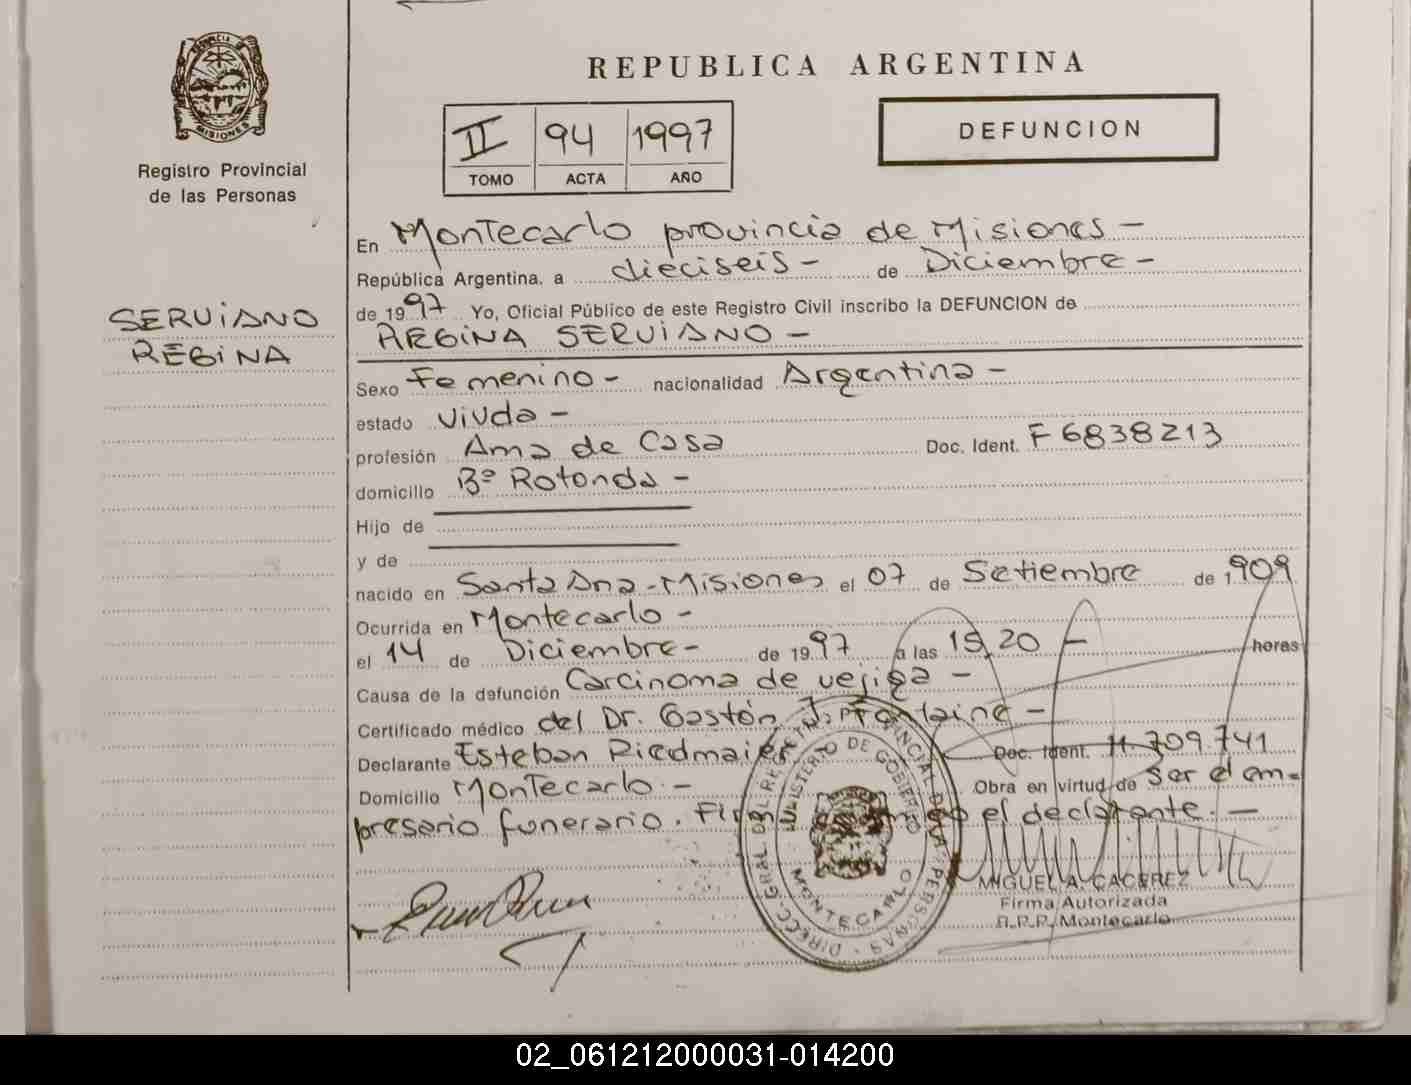 REPUBLICA ARGENTINA
PROVINCIA DE
MISIONES
Registro Provincial
de las Personas
II 94 1997
TOMO ACTA AÑO
DEFUNCION
SERVIANO
REGINA
En Montecarlo provincia de Misiones -
República Argentina, a dieciseis - de Diciembre -
de 1997 Yo, Oficial Público de este Registro Civil inscribo la DEFUNCION de
REGINA SERVIANO -
Sexo Femenino - nacionalidad Argentina -
estado Viuda -
profesión Ama de Casa Doc. Ident. F 6838213
domicilio Bº Rotonda -
Hijo de
y de
nacido en Santa Ana - Misiones el 07 de Setiembre de 1909
Ocurrida en Montecarlo -
el 14 de Diciembre - de 1997 a las 15,20 - horas
Causa de la defunción Carcinoma de vejiga -
Certificado médico del Dr. Gastón J. Fontaine -
Declarante Esteban Riedmaier Doc. Ident. 11.709.741
Domicilio Montecarlo. - Obra en virtud de ser el em=
presario funerario. Firma el declarante. -
DIREC. GRAL. DEL REGISTRO PROVINCIAL DE LAS PERSONAS
MINISTERIO DE GOBIERNO
MONTECARLO
MIGUEL A. CACEREZ
Firma Autorizada
R.P.P. Montecarlo
02_061212000031-014200